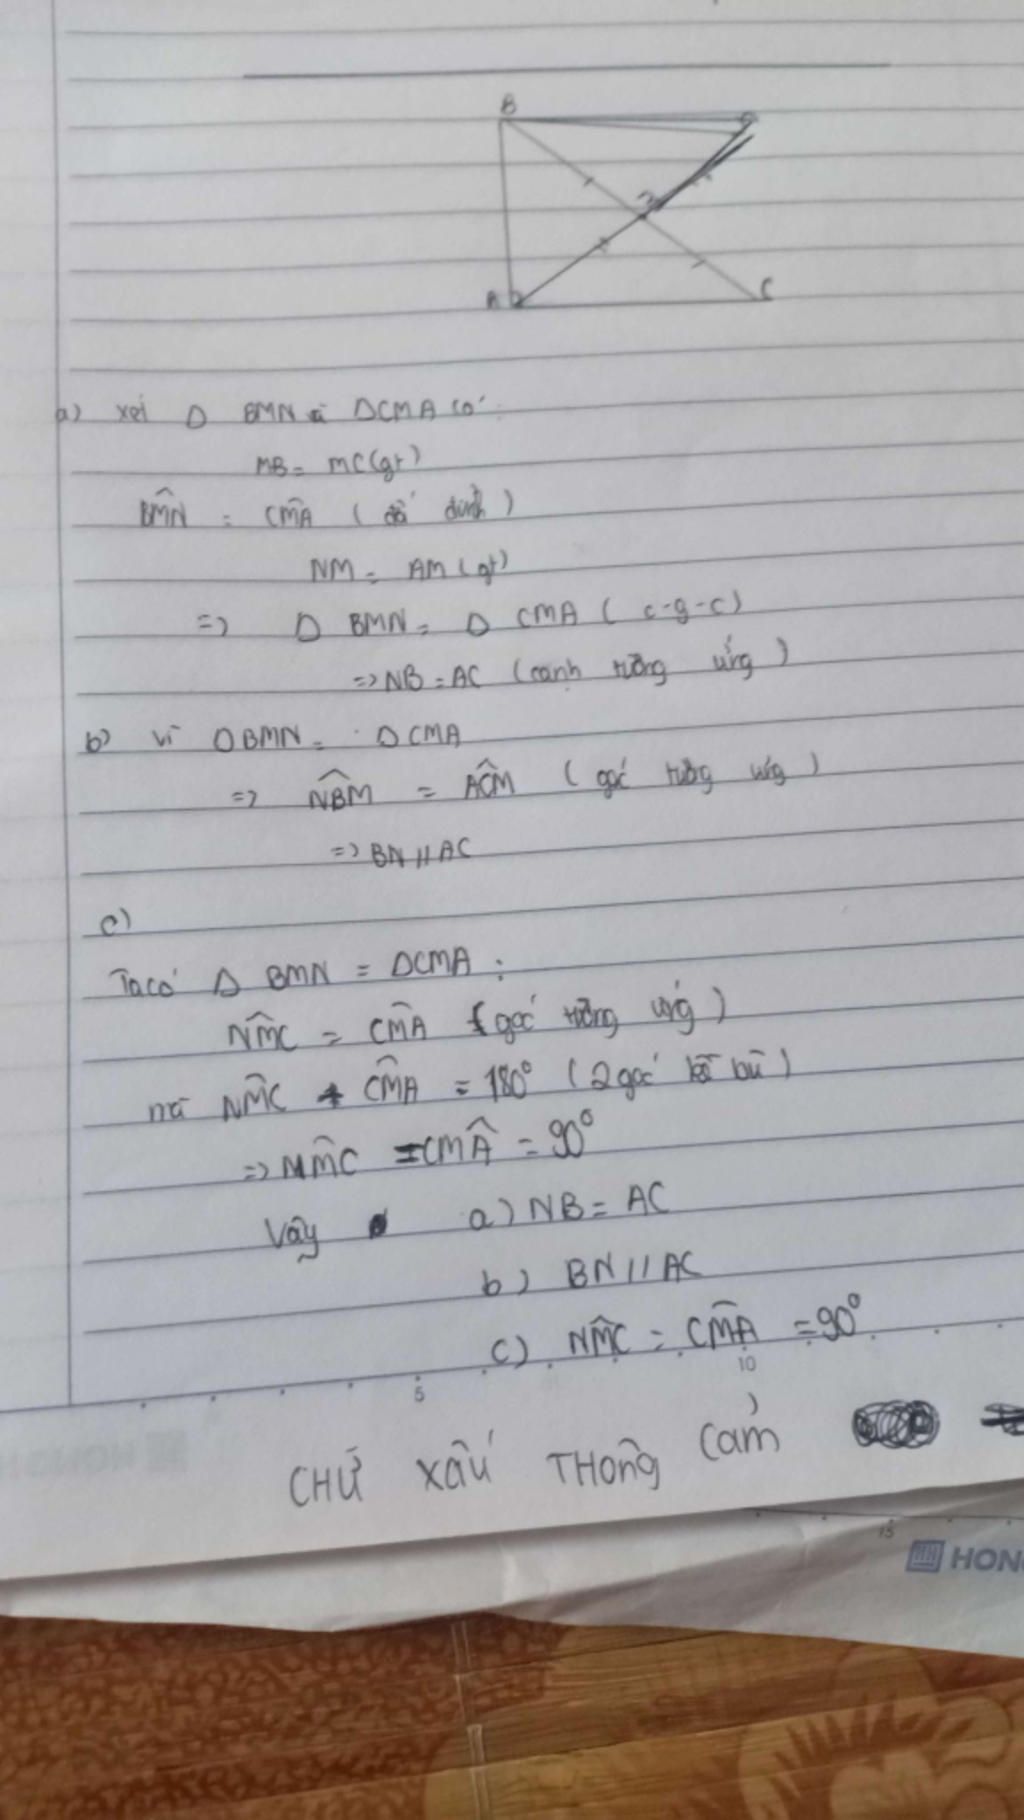 B
A
C
a) xét Δ BMN và ΔCMA có:
MB = MC(gt)
BMN̂ = CMÂ (đối đỉnh)
NM = AM (gt)
=> Δ BMN = Δ CMA ( c-g-c)
=> NB = AC (cạnh tương ứng)
b) Vì ΔBMN = ΔCMA
=> NBM̂ = ACM̂ ( góc tương ứng )
=> BN // AC
c)
Ta có Δ BMN = ΔCMA :
NMĈ = CMÂ (góc tương ứng)
mà NMĈ + CMÂ = 180° (2 góc kề bù)
=> NMĈ = CMÂ = 90°
Vậy a) NB = AC
b) BN // AC
c) NMĈ = CMÂ = 90°
5
10
CHỮ XẤU THÔNG CảM
15
HONG